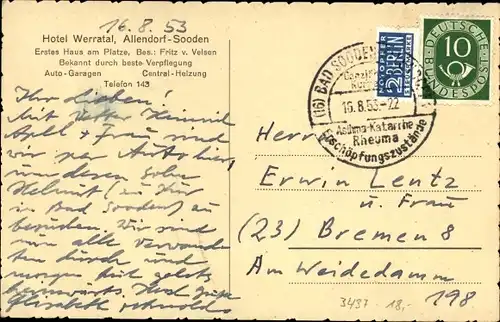 16.8.53
Hotel Werratal, Allendorf-Sooden
Erstes Haus am Platze, Bes.: Fritz v. Velsen
Bekannt durch beste Verpflegung
Auto-Garagen Central-Heizung
Telefon 143
Ihr Lieben!
Mit Vetter Heinrich
+ Frau sind
wir per Auto hier,
um deren Sohn
Helmut (zu Kur
in Bad Sooden) zu
besuchen. Wir sind
nun alle Verwandten
durch und
morgen geht
heimwärts. Viel Grüße
Elisabeth
(16) BAD SOODEN
16.8.53-22
Asthma-Katarrhe
Rheuma
Erschöpfungszustände
NOTOPFER
2 BERLIN
STEUERMARKE
10
DEUTSCHE
BUNDESPOST
Herrn
Erwin Lentz
u. Frau
(23) Bremen 8
Am Weidedamm
198
3437 18,-